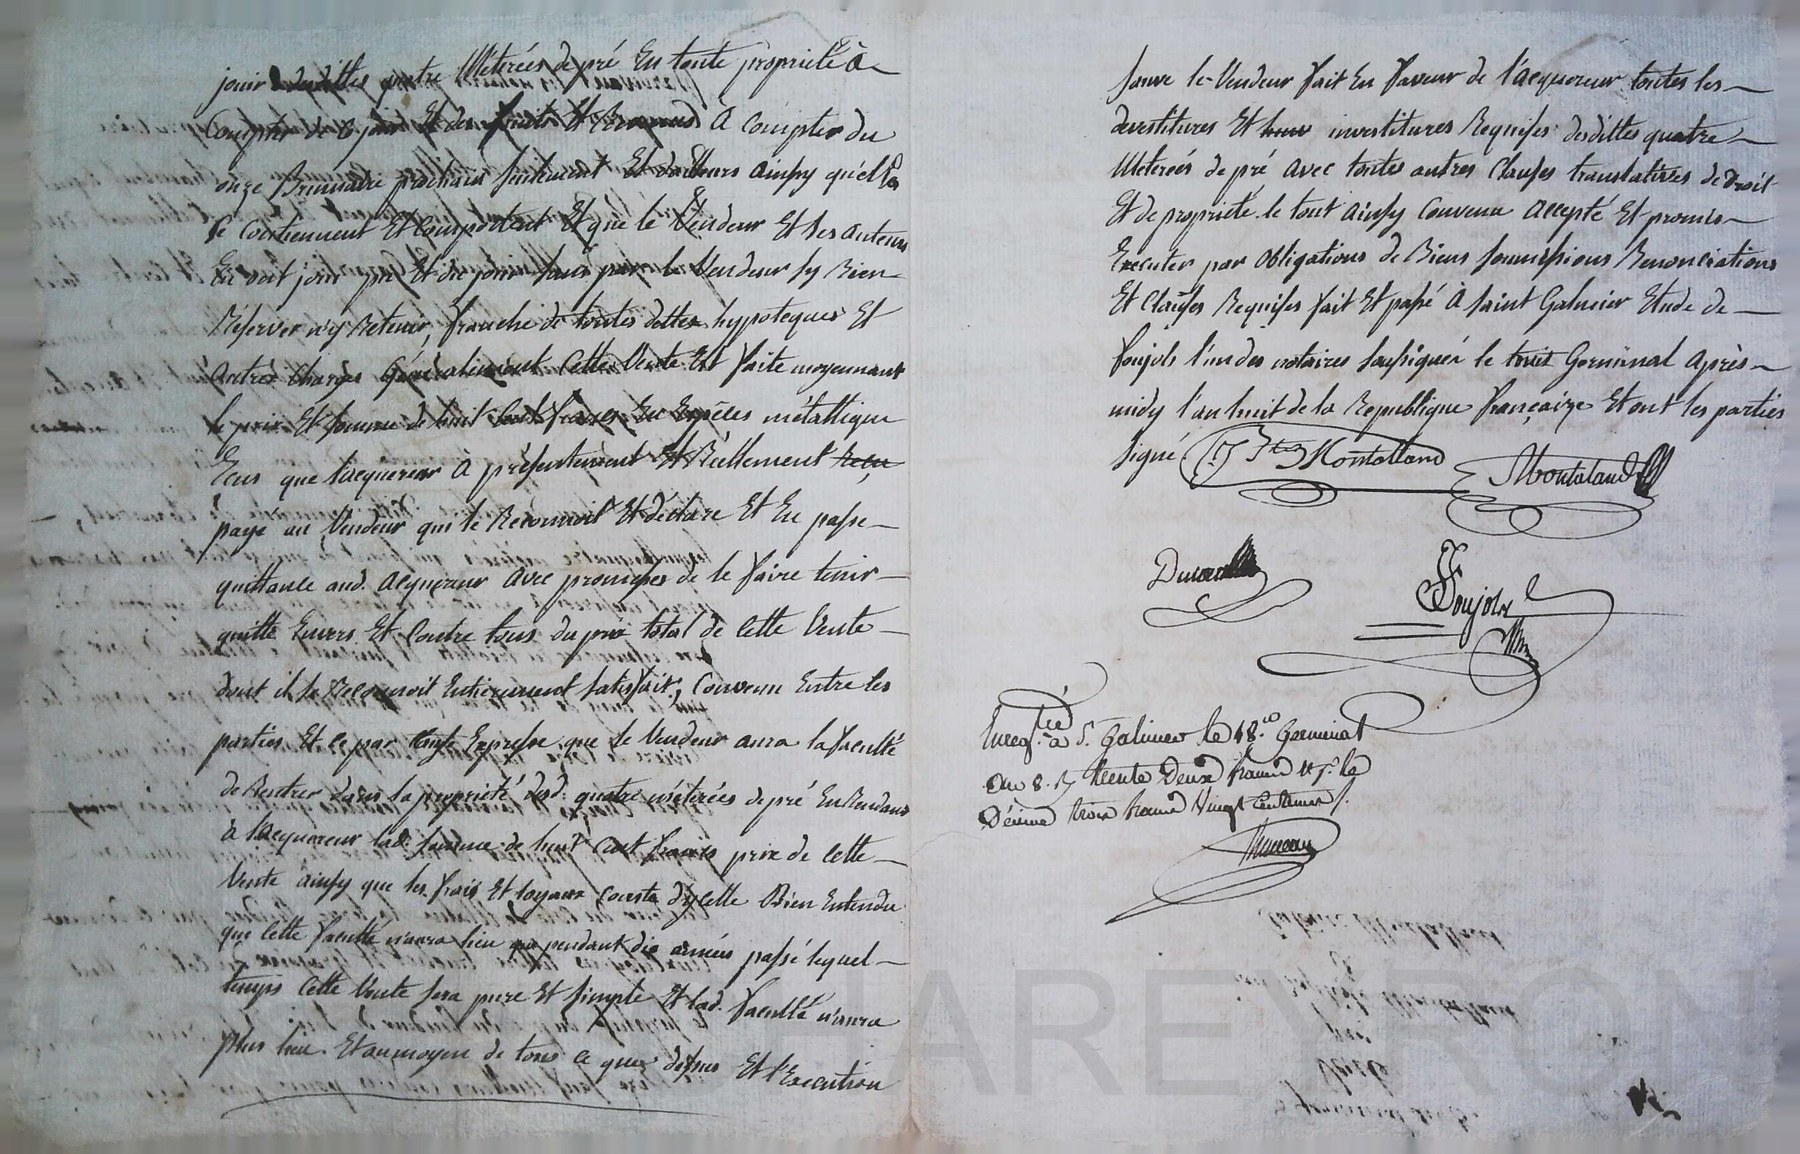 jouir desdittes quatre Méterées de pré En toute propriété à
Compter de ce jour Et des fruits Et Revenus A Compter du
onze Brumaire prochain seulement Et d'ailleurs Ainsy qu'elles
se Contiennent Et Comportent Et que le Vendeur Et ses auteurs
En ont joui pu Et du jouir sans par le Vendeur sy Rien
Réserver n'y Retenir, franche de toutes dettes hypoteques Et
autres Charges Généralement Cette Vente Est faite moyennant
le prix Et somme de huit Cent francs En Espèces métallique
Ecus que lacquereur à présentement Et Réellement
payé au Vendeur qui le Reconnoit Et déclare Et En passe
quittance aud. Acquereur avec promesses de le faire tenir
quitte Envers Et Contre tous du prix total de Cette Vente
dont il se Reconnoit Entierement satisfait, Convenu Entre les
parties Et ce par Clause Expresse que le Vendeur aura la faculté
de Rentrer dans la propriété desd. quatre méterées de pré En Rendant
à lacquereur lad. somme de huit Cent francs prix de Cette
Vente ainsy que les frais Et loyaux Cousts dycelle Bien Entendu
que Cette faculté n'aura lieu que pendant dix années passé lequel
temps Cette Vente sera pure Et simple Et lad. faculté n'aura
plus lieu. Et au moyen de tous ce que dessus Et l'Execution
sauve le Vendeur fait En faveur de l'acquereur toutes les
devestitures Et investitures Requises desdittes quatre
Méterées de pré avec toutes autres Clauses translatives de Droit
Et de propriété. le tout Ainsy Convenu Accepté Et promis
Executer par Obligations de Biens soumissions Renonciations
Et Clauses Requises fait Et passé à Saint Galmier Etude de
Foujols l'un des notaires soussignés le Germinal Après
midy l'an huit de la Republique françaize Et ont les parties
signé J Bte Montolland Montaland
Foujols
Enregtré à St. Galmier le 18. Germinal
an 8. R trente Deux francs le
Décime trois francs Vingt Centimes
JAREYRON